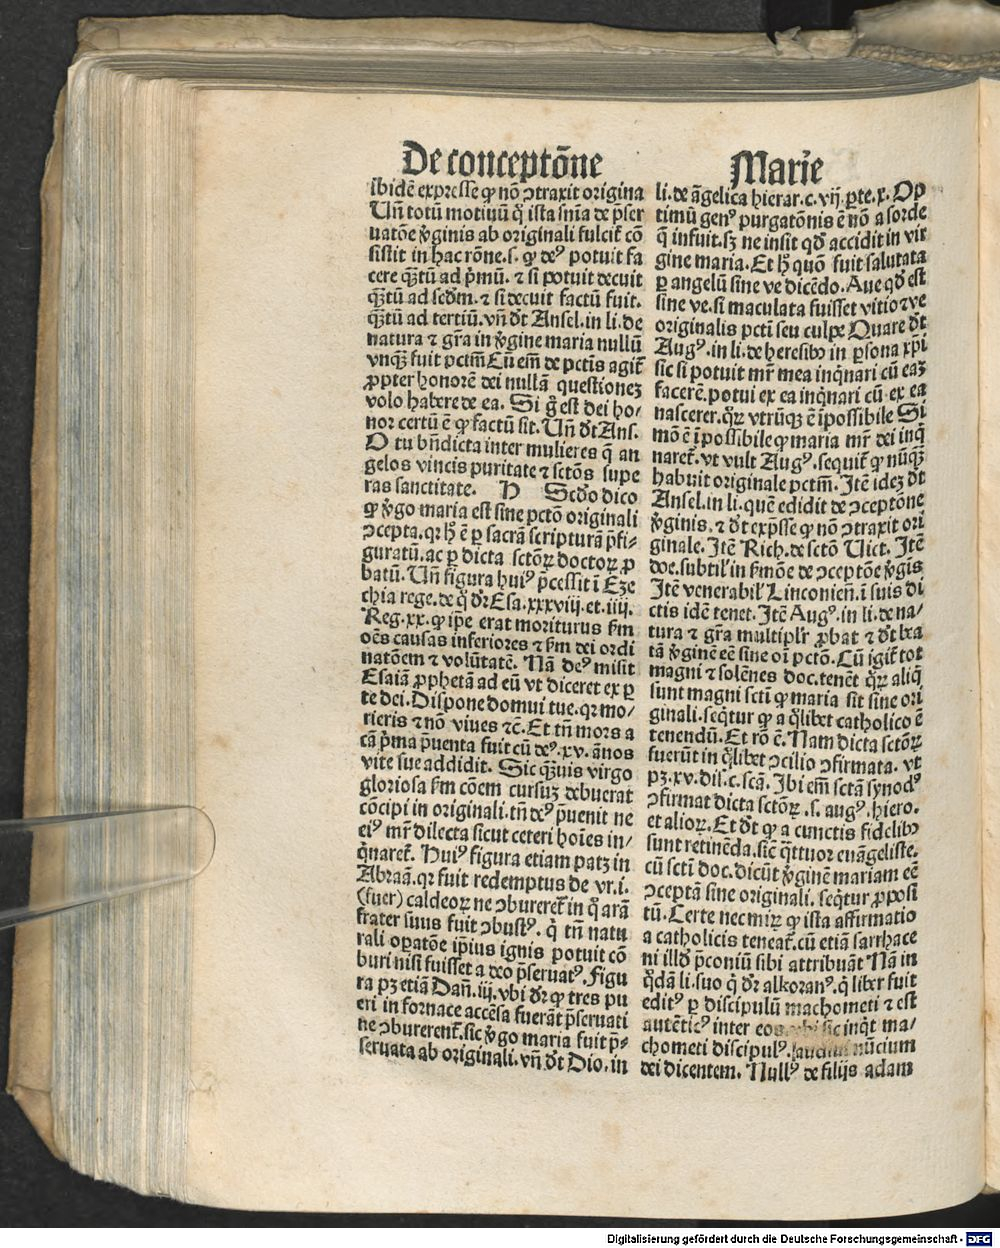 De conceptōne
Marie
ibidē expresse ꝙ nō ↄtraxit origina
Un̄ totū motiuū q̇ ista sn̄ia de p̄ser
uatōe ꝟginis ab originali fulcit̄ cō
sistit in hac rōne.s. ꝙ deꝰ potuit fa
cere qꝫtū ad p̄mū. ⁊ si potuit decuit
qꝫtū ad sedm̄. ⁊ si decuit factū fuit.
qꝫtū ad tertiū. vn̄ dt̄ Ansel. in li. de
natura ⁊ gr̄a in ꝟgine maria nullū
vnqꝫ fuit pctm̄ Cū em̄ de pctīs agit̄
ꝓpter honorē dei nullā questionez
volo habere de ea. Si g̊ est dei ho⸗
nor certū ē ꝙ factū sit. Un̄ dt̄ Ans.
O tu bn̄dicta inter mulieres q̄ an
gelos vincis puritate ⁊ sctōs supe
ras sanctitate. H Scdo dico
ꝙ ꝟgo maria est sine pctō originali
ↄcepta. qr hꝭ ē ꝑ sacrā scripturā p̄fi⸗
guratū. ac ꝑ dicta sctōꝝ doctoꝝ ꝓ
batū. Un̄ figura huiꝰ p̄cessit ī Eze
chia rege. de q̊ dr̄ Esa. xxxviij. et. iiij.
Reg. xx. ꝙ ip̄e erat moriturus fm̄
oēs causas inferiores ⁊ fm̄ dei ordi
natōem ⁊ volūtatē. Nā deꝰ misit
Esaiā ꝓphetā ad eū vt diceret ex ꝑ
te dei. Dispone domui tue. qr mo/
rieris ⁊ nō viues ⁊c. Et tn̄ mors a
cā p̄ma p̄uenta fuit cū deꝰ. xv. ānos
vite sue addidit. Sic qꝫuis virgo
gloriosa fm̄ cōem cursuz debuerat
cōcipi in originali. tn̄ deꝰ p̄uenit ne
eiꝰ mr̄ dilecta sicut ceteri hoīes in/
q̇naret̄. Huiꝰ figura etiam patz in
Abraā. qr fuit redemptus de vr. i.
(fuer) caldeoꝝ ne ↄbureret̄ in q̊ arā
frater suus fuit ↄbustꝰ. q̇ tn̄ natu
rali oꝑatōe ip̄ius ignis potuit cō
buri nisi fuisset a deo p̄seruatꝰ. Figu
ra pꝫ etiā Dan̄. iij. vbi dr̄ ꝙ tres pu
eri in fornace accēsa fuerāt p̄seruati
ne ↄburerent̄. sic ꝟgo maria fuit p̄⸗
seruata ab originali. vn̄ dt̄ Dio. in
li. de āgelica hierar. c. vij. ꝑte. x. Op
timū genꝰ purgatōnis ē nō a sorde
q̄ infuit. sꝫ ne insit qd̄ accidit in vir
gine maria. Et hꝭ quō fuit salutata
ꝑ angelū sine ve dicēdo. Aue qd̄ est
sine ve. si maculata fuisset vitio ⁊ ve
originalis pctī seu culpe Quare dt̄
Augꝰ. in li. de heresibꝰ in ꝑsona xp̄i
sic si potuit mr̄ mea inq̇nari cū eaꝫ
facerē. potui ex ea inq̇nari cū ex ea
nascerer. qꝝ vtrūqꝫ ē īpossibile Si
mō ē īpossibile ꝙ maria mr̄ dei inq̇
naret̄. vt vult Augꝰ. sequit̄ ꝙ nūqꝫ
habuit originale pctm̄. Itē idez dt̄
Ansel. in li. quē edidit de ↄceptōne
ꝟginis. ⁊ dt̄ exp̄sse ꝙ nō ↄtraxit ori
ginale. Itē Rich. de sctō Uict. Itē
doc. subtil' in ẜmōe de ↄceptōe ꝟgīs
Itē venerabil' Linconien̄. ī suis di
ctis idē tenet. Itē Augꝰ. in li. de na/
tura ⁊ gr̄a multiplr̄ ꝓbat ⁊ dt̄ bea
tā ꝟginē eē sine oī pctō. Cū igit̄ tot
magni ⁊ solēnes doc. tenēt qꝝ aliq̇
sunt magni sctī ꝙ maria sit sine ori
ginali. seqt̄ur ꝙ a q̊libet catholico ē
tenendū. Et rō ē. Nam dicta sctōꝝ
fuerūt in q̊libet ↄcilio ↄfirmata. vt
pꝫ. xv. dis. c. scā. Ibi em̄ sctā synodꝰ
ↄfirmat dicta sctōꝝ .s. augꝰ. hiero.
et alioꝝ. Et dt̄ ꝙ a cunctis fidelibꝰ
sunt retinēda. sic̄ q̄ttuor euāgeliste.
cū sctī doc. dicūt ꝟginē mariam eē
ↄceptā sine originali. seqt̄ur ꝓposi
tū. Certe nec miꝝ ꝙ ista affirmatio
a catholicis teneat̄. cū etiā sarrhace
ni illd̄ p̄coniū sibi attribuāt Nā in
q̊dā li. suo q̇ dr̄ alkoranꝰ. q̇ liber fuit
editꝰ ꝑ discipulū machometi ⁊ est
autēticꝰ inter eos vbi sic inqt̄ ma/
chometi discipulꝰ. nūcium
dei dicentem. Nullꝰ de filijs adam
Digitalisierung gefördert durch die Deutsche Forschungsgemeinschaft - DFG